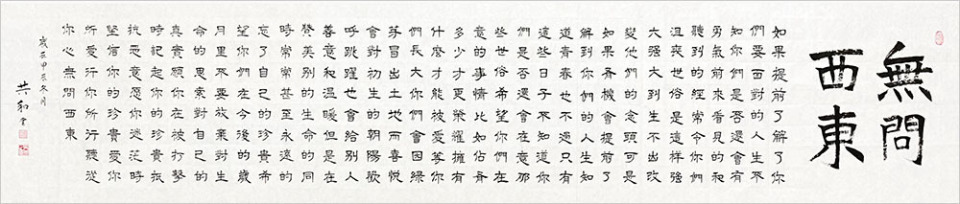 無問
西東
如果提前了解了你
們要面對的人生不
知你們是否還會有
勇氣前來看見的和
聽到的經常令你們
沮喪世俗是這樣強
大強大到生不出改
變他們的念頭可是
如果有機會提前了
解到你們的人生知
道青春也不過只有
這些日子不知道你
們是否還會在意那
些世俗希望你們在
意的事情比如佔有
多少才更榮耀擁有
什麼才能被愛等你
們長大你們會因綠
芽冒出土地而喜悅
會對初生的朝陽歡
呼跳躍也會給別人
善意和溫暖但是在
讚美別的生命的同
時常常甚至永遠的
忘了自己的珍貴希
望你們在今後的歲
月里不要放棄對生
命的思索對自己的
真實願你在被打擊
時記起你的珍貴抵
抗惡意愿你迷茫時
堅信你的珍貴愛你
所愛行你所行聽從
你心無問西東
歲在甲辰冬月
共和